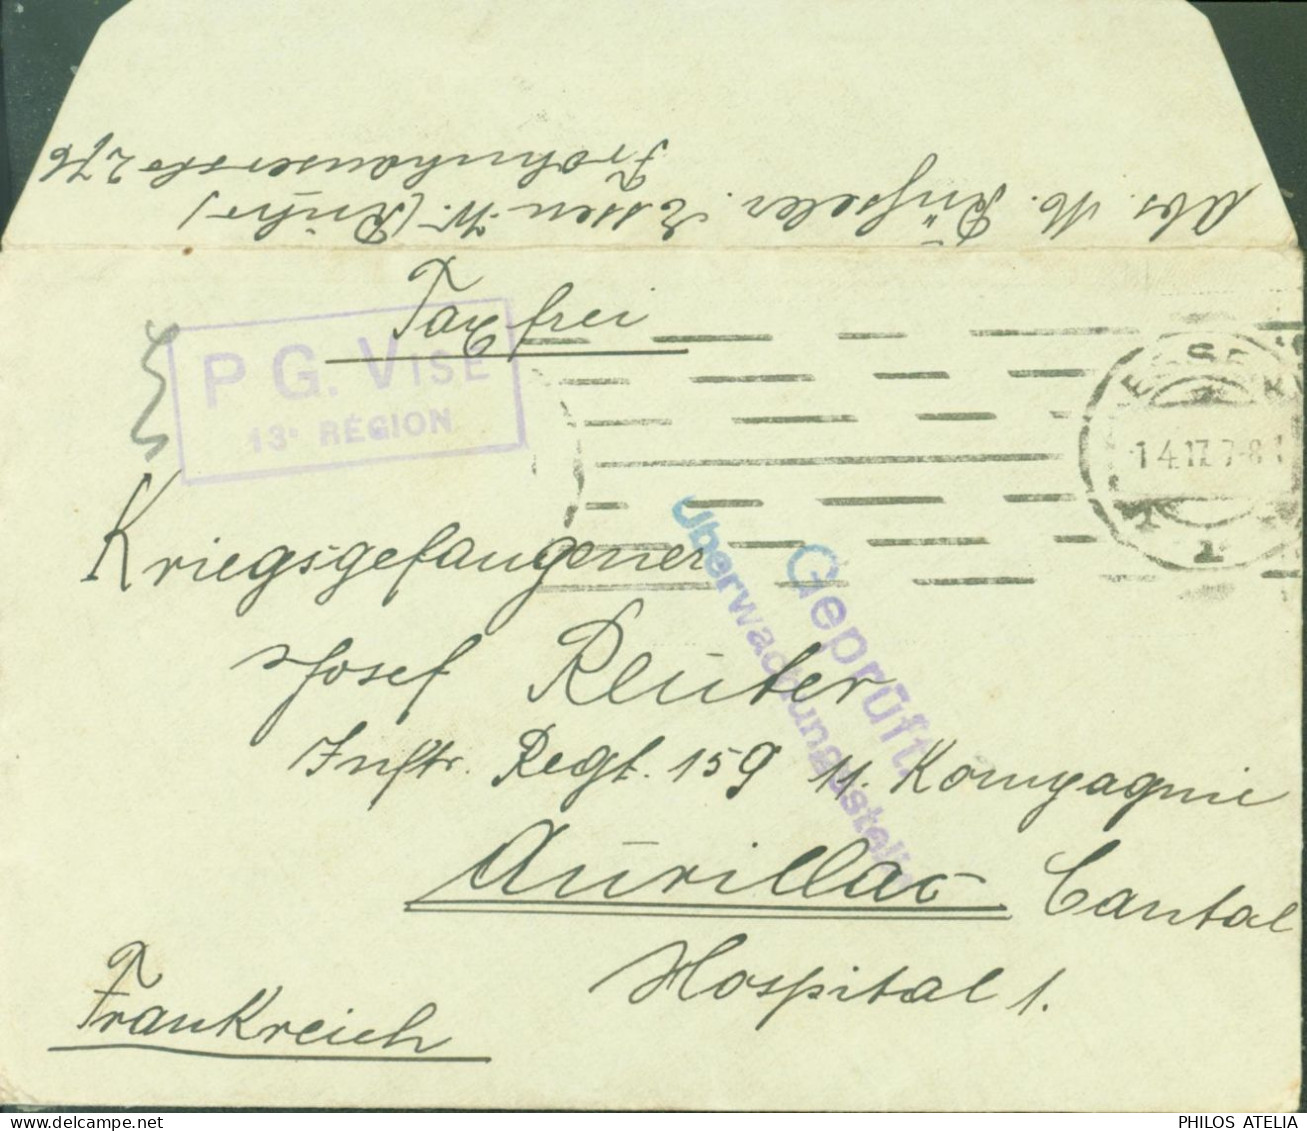 Abs. M. Rüsseler. Essen-W. (Ruhr)
Frohnhauserstr 276
Taxfrei
P G. VISÉ
13e RÉGION
1 4.17. 7-8
1
Geprüft.
Überwachungsstelle
Kriegsgefangener
Josef Reuter
Inftr. Regt. 159 11. Kompagnie
Aurillac Cantal
Hospital 1.
Frankreich
PHILOS ATELIA